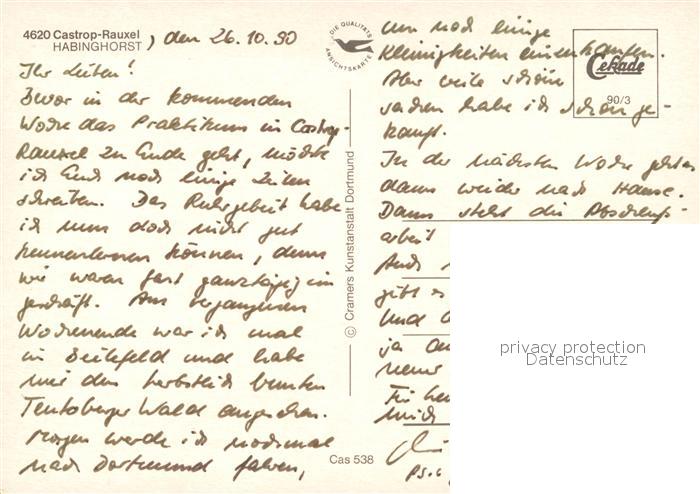 4620 Castrop-Rauxel
HABINGHORST
, den 26.10.90
Ihr Lieben!
Bevor in der kommenden
Woche das Praktikum in Castrop-
Rauxel zu Ende geht, möchte
ich Euch noch einige Zeilen
schreiben. Das Ruhrgebiet habe
ich nun doch nicht gut
kennenlernen können, denn
wir waren fast ganztägig im
geschäft. Am vergangenen
Wochenende war ich mal
in Bielefeld und habe
mir den herbstlich bunten
Teutoburger Wald angesehen.
Morgen werde ich nochmal
nach Dortmund fahren,
DIE QUALITÄTS
ANSICHTSKARTE
© Cramers Kunstanstalt Dortmund
Cas 538
um noch einige
Kleinigkeiten einzukaufen.
Aber viele schöne
sachen habe ich schon ge-
kauft.
Cekade
90/3
In der nächsten Woche gehts
dann wieder nach Hause.
Dann steht die Abschluß-
arbeit
Auch
gibt es
Und
ja
neue
Für
mich
privacy protection
Datenschutz